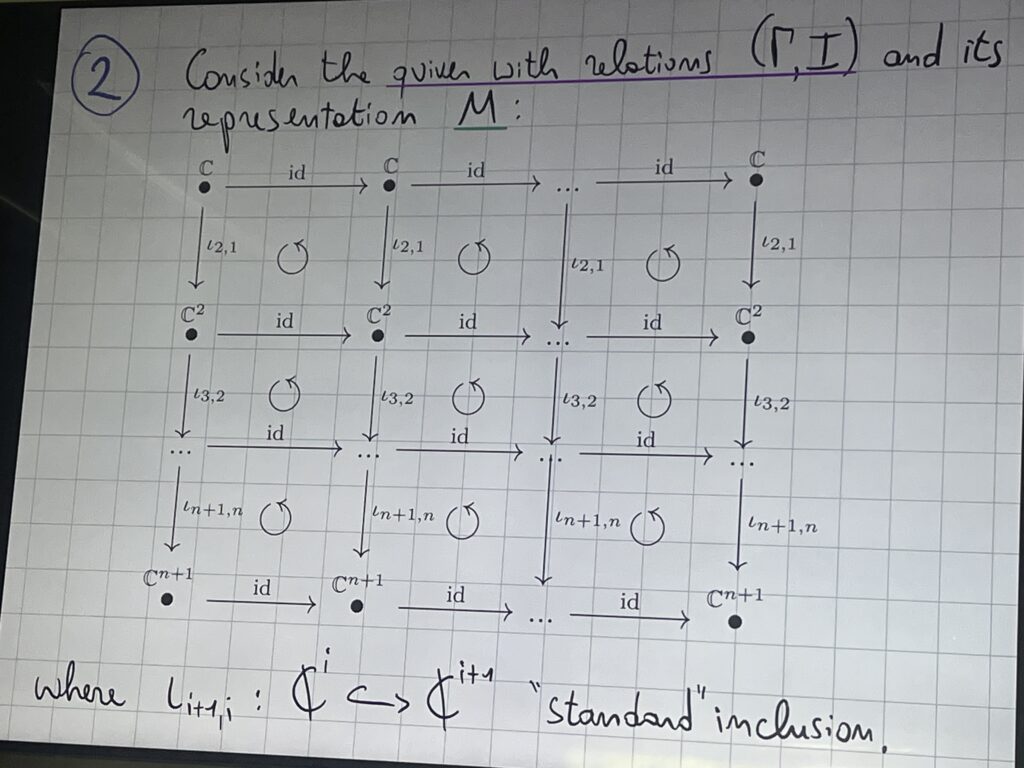 ② Consider the quiver with relations (Γ, I) and its
representation M:
ℂ id ℂ id ... id ℂ
ι₂,₁ ι₂,₁ ι₂,₁ ι₂,₁
ℂ² id ℂ² id ... id ℂ²
ι₃,₂ ι₃,₂ ι₃,₂ ι₃,₂
... id ... id ... id ...
ιₙ₊₁,ₙ ιₙ₊₁,ₙ ιₙ₊₁,ₙ ιₙ₊₁,ₙ
ℂⁿ⁺¹ id ℂⁿ⁺¹ id ... id ℂⁿ⁺¹
where ιᵢ₊₁,ᵢ : ℂⁱ ↪ ℂⁱ⁺¹ "standard" inclusion.